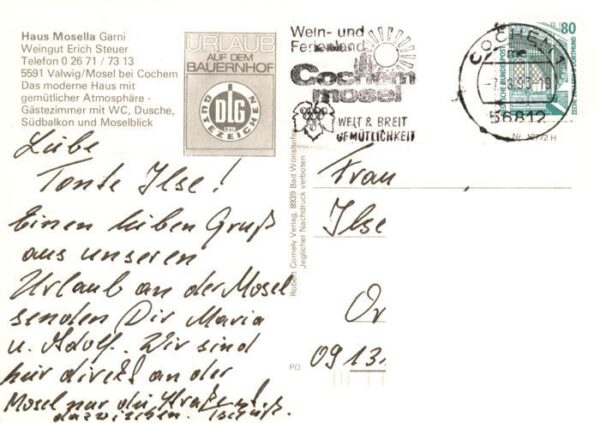 Haus Mosella Garni
Weingut Erich Steuer
Telefon 0 26 71 / 73 13
5591 Valwig/Mosel bei Cochem
Das moderne Haus mit
gemütlicher Atmosphäre -
Gästezimmer mit WC, Dusche,
Südbalkon und Moselblick
URLAUB
AUF DEM
BAUERNHOF
DLG
GÜTEZEICHEN
Wein- und
Ferienland
Cochem
mosel
WELT & BREIT
GEMÜTLICHKEIT
COCHEM 1
56812
80
DEUTSCHE BUNDESPOST
Liebe
Tante Ilse!
Einen lieben Gruß
aus unseren
Urlaub an der Mosel
senden Dir Maria
u. Adolf. Wir sind
hier direkt an der
Mosel nur die Straße
dazwischen. Tschüß.
Robert Cornely Verlag, 8939 Bad Wörishofen
Jeglicher Nachdruck verboten
PO
Frau
Ilse
Or
0913